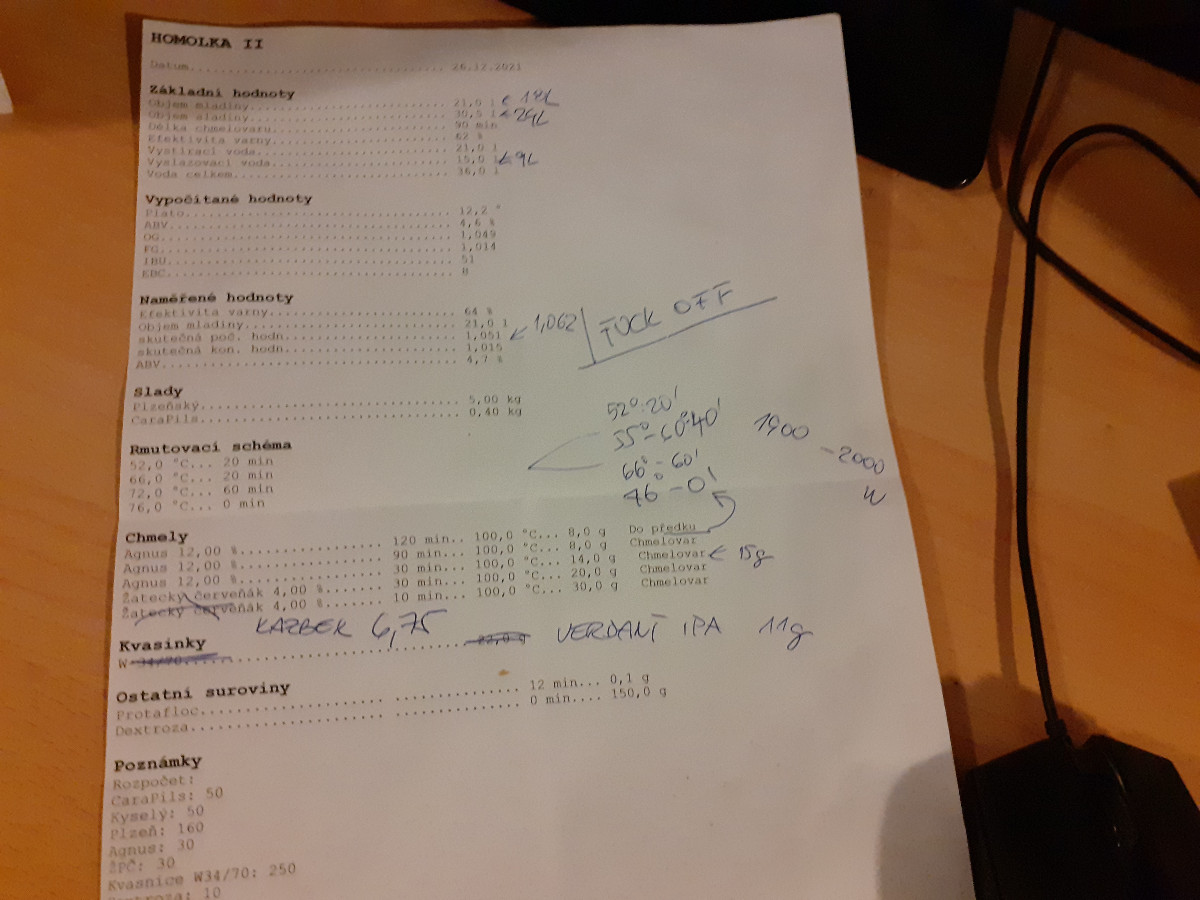 HOMOLKA II
Datum.................................. 26.12.2021
Základní hodnoty
Objem mladiny.......................... 21,0 l ← 18L
Objem mladiny.......................... 30,5 l ← 24L
Délka chmelovaru....................... 90 min
Efektivita varny....................... 62 %
Vystírací voda......................... 21,0 l
Vyslazovací voda....................... 15,0 l ← 9L
Voda celkem............................ 36,0 l
Vypočítané hodnoty
Plato.................................. 12,2 °
ABV.................................... 4,6 %
OG..................................... 1,049
FG..................................... 1,014
IBU.................................... 51
EBC.................................... 8
Naměřené hodnoty
Efektivita varny....................... 64 %
Objem mladiny.......................... 21,0 l
skutečná poč. hodn..................... 1,051 ← 1,062 FUCK OFF
skutečná kon. hodn..................... 1,015
ABV.................................... 4,7 %
Slady
Plzeňský............................... 5,00 kg
CaraPils............................... 0,40 kg
Rmutovací schéma
52,0 °C... 20 min
66,0 °C... 20 min
72,0 °C... 60 min
76,0 °C... 0 min
52° 20'
55°-60° 40'
66° - 60'
46° - 0'
1900
-2000
W
Chmely
Agnus 12,00 %................. 120 min.. 100,0 °C... 8,0 g Do předku
Agnus 12,00 %................. 90 min... 100,0 °C... 8,0 g Chmelovar
Agnus 12,00 %................. 30 min... 100,0 °C... 14,0 g Chmelovar ← 15g
Žatecký červeňák 4,00 %....... 30 min... 100,0 °C... 20,0 g Chmelovar
Žatecký červeňák 4,00 %....... 10 min... 100,0 °C... 30,0 g Chmelovar
KAZBEK 6,75
Kvasinky
W-34/70........................ 22,0 g VERDANT IPA 11g
Ostatní suroviny
Protafloc................. ............ 12 min... 0,1 g
Dextroza.................. ............ 0 min.... 150,0 g
Poznámky
Rozpočet:
CaraPils: 50
Kyselý: 50
Plzeň: 160
Agnus: 30
ŽPČ: 30
Kvasnice W34/70: 250
Dextroza: 10